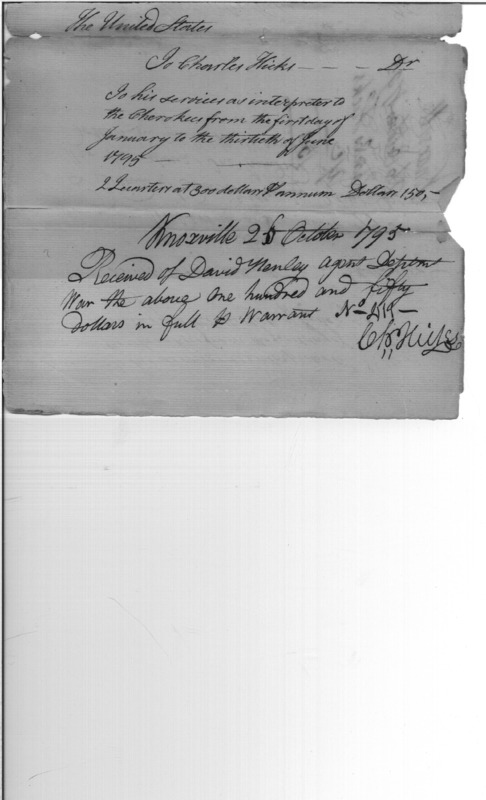 The United States
To Charles Hicks - - - Dr
To his services as interpreter to
the Cherokees from the first day of
January to the thirtieth of June
1795 —
2 Quarters at 300 dollars P annum Dollars 150,-
Knoxville October 1795
Received of David Henley agent Deptmt
War the above One hundred and fifty
dollars in full P Warrant No
Chs Hicks